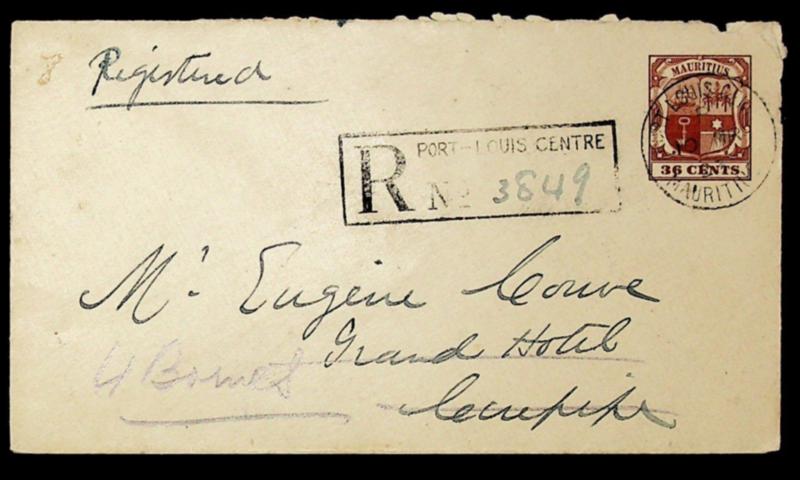 Registered
MAURITIUS
36 CENTS
MAURITIUS
R PORT-LOUIS CENTRE
No 3849
Mr Eugène Couve
Grand Hotel
Curepipe